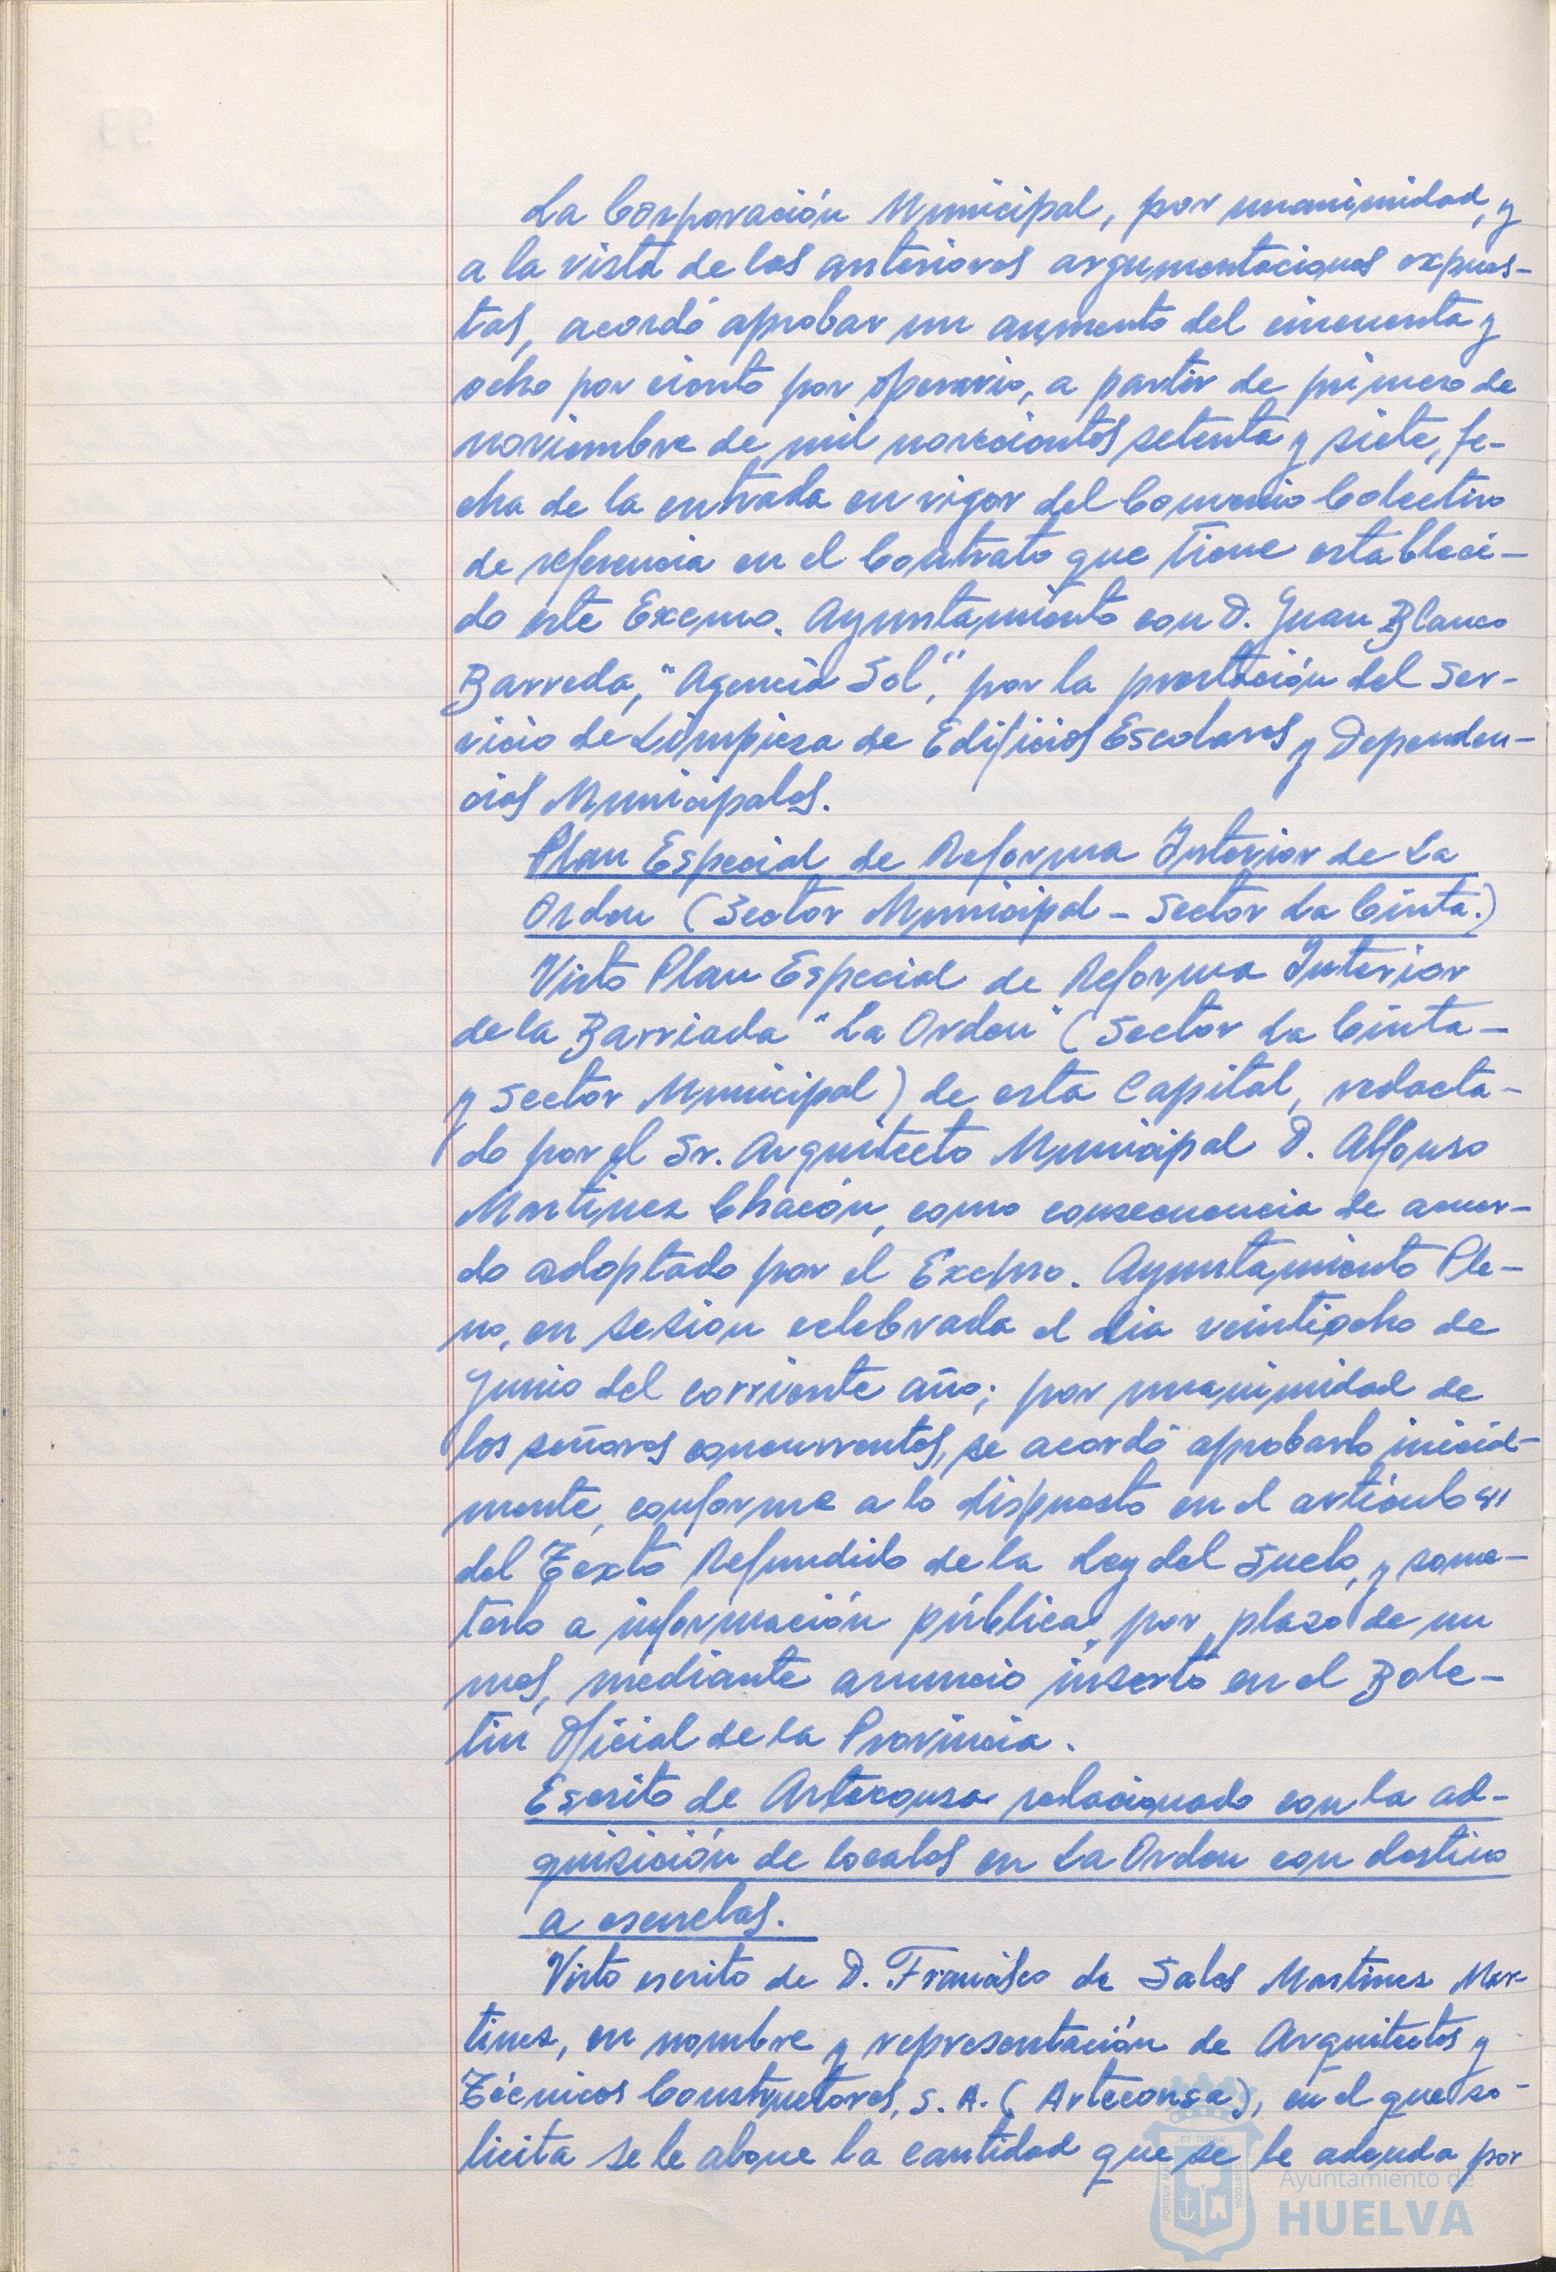 La Corporación Municipal, por unanimidad, y
a la vista de las anteriores argumentaciones expues-
tas, acordó aprobar un aumento del cincuenta y
ocho por ciento por operario, a partir de primero de
noviembre de mil novecientos setenta y siete, fe-
cha de la entrada en vigor del Convenio Colectivo
de referencia en el Contrato que tiene estableci-
do este Excmo. Ayuntamiento con D. Juan Blanco
Barreda, "Agencia Sol", por la prestación del Ser-
vicio de Limpieza de Edificios Escolares y Dependen-
cias Municipales.
Plan Especial de Reforma Interior de La
Orden (Sector Municipal - Sector La Cinta.)
Visto Plan Especial de Reforma Interior
de la Barriada "La Orden" (Sector La Cinta-
y Sector Municipal) de esta Capital, redacta-
do por el Sr. Arquitecto Municipal D. Alfonso
Martínez Chacón, como consecuencia de acuer-
do adoptado por el Excmo. Ayuntamiento Ple-
no, en sesion celebrada el dia veintiocho de
Junio del corriente año; por unanimidad de
los señores concurrentes, se acordó aprobarlo inicial-
mente, conforme a lo dispuesto en el artículo 41
del Texto Refundido de la Ley del Suelo, y some-
terlo a información pública, por plazo de un
mes, mediante anuncio inserto en el Bole-
tin Oficial de la Provincia.
Escrito de Arteconsa relacionado con la ad-
quisición de locales en La Orden con destino
a escuelas.
Visto escrito de D. Francisco de Sales Martínez Mar-
tinez, en nombre y representación de Arquitectos y
Técnicos Constructores, S. A. (Arteconsa), en el que so-
licita se le abone la cantidad que se le adeuda por
Ayuntamiento de
HUELVA